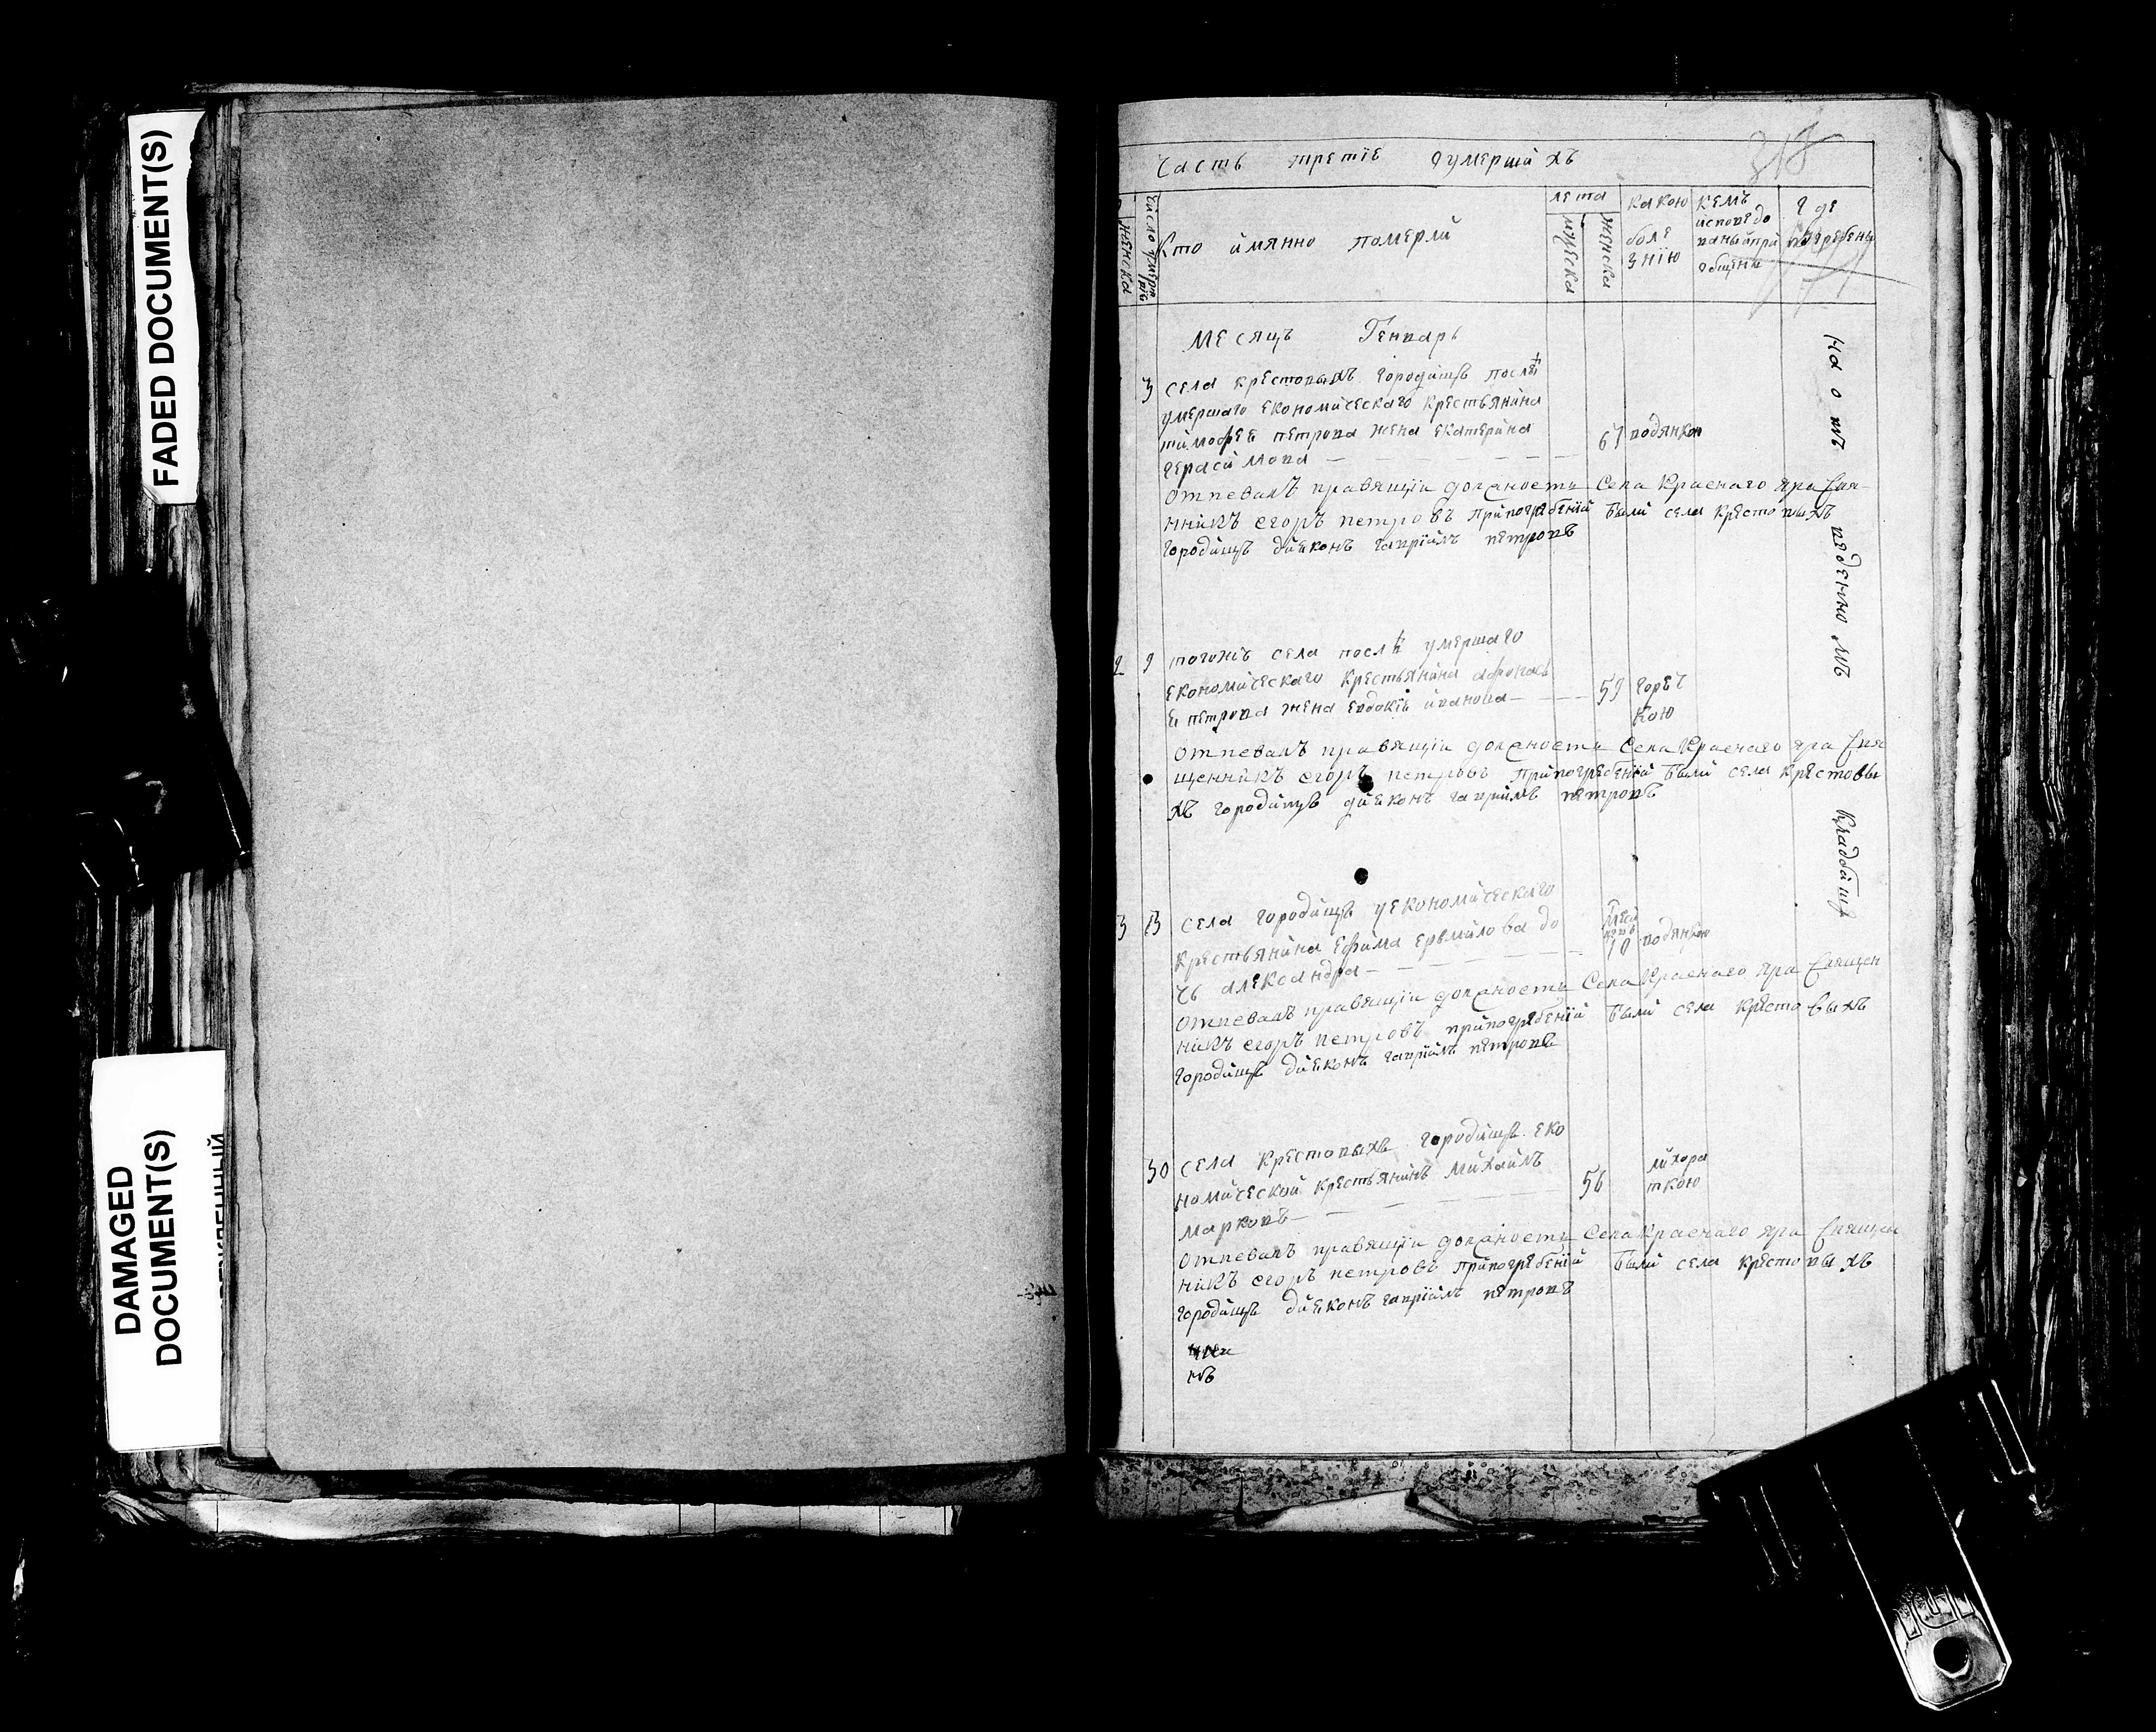 FADED DOCUMENT(S)
DAMAGED
DOCUMENT(S)
318
Часть третіе оумершихъ
женска
число умертвіе
Кто имянно померли
лета
мужеска
женска
какою
боле
знію
кемъ
исповедо
ваны и при
общены
где
погребены
Месяцъ Генварь
3 села крестовыхъ городищъ послѣ
умершаго економическаго крестьянина
тимофея петрова жена екатерина
герасимова — 67 водянкою
отпевалъ правящїи должность Села Краснаго яра Свя-
нникъ егоръ петровъ при погребенїи были села крестовыхъ
городищъ дияконъ гаврїилъ петровъ
2 9 тогожъ села послѣ умершаго
економическаго крестьянина афонась
я петрова жена евдокїя иванова — 59 гореч
кою
отпевалъ правящїи должность Села Краснаго яра Свя
щенникъ егоръ петровъ при погребенїи были села крестовы
хъ городищъ дияконъ гаврїилъ петровъ
3 13 села городищъ у економическаго
крестьянина Ефима Ермилова до
чь александра — 10 водянкою
отпевалъ правящїи должность Села Краснаго яра Священ
никъ егоръ петровъ при погребенїи были села крестовыхъ
городищъ дияконъ гаврїилъ петровъ
30 села крестовыхъ городищъ еко
номической крестьянинъ михайлъ
марковъ — 56 лихора
ткою
отпевалъ правящїи должность Села Краснаго яра Священ
никъ егоръ петровъ при погребенїи были села крестовыхъ
городищъ дияконъ гаврїилъ петровъ
на отведенномъ кладбищѣ